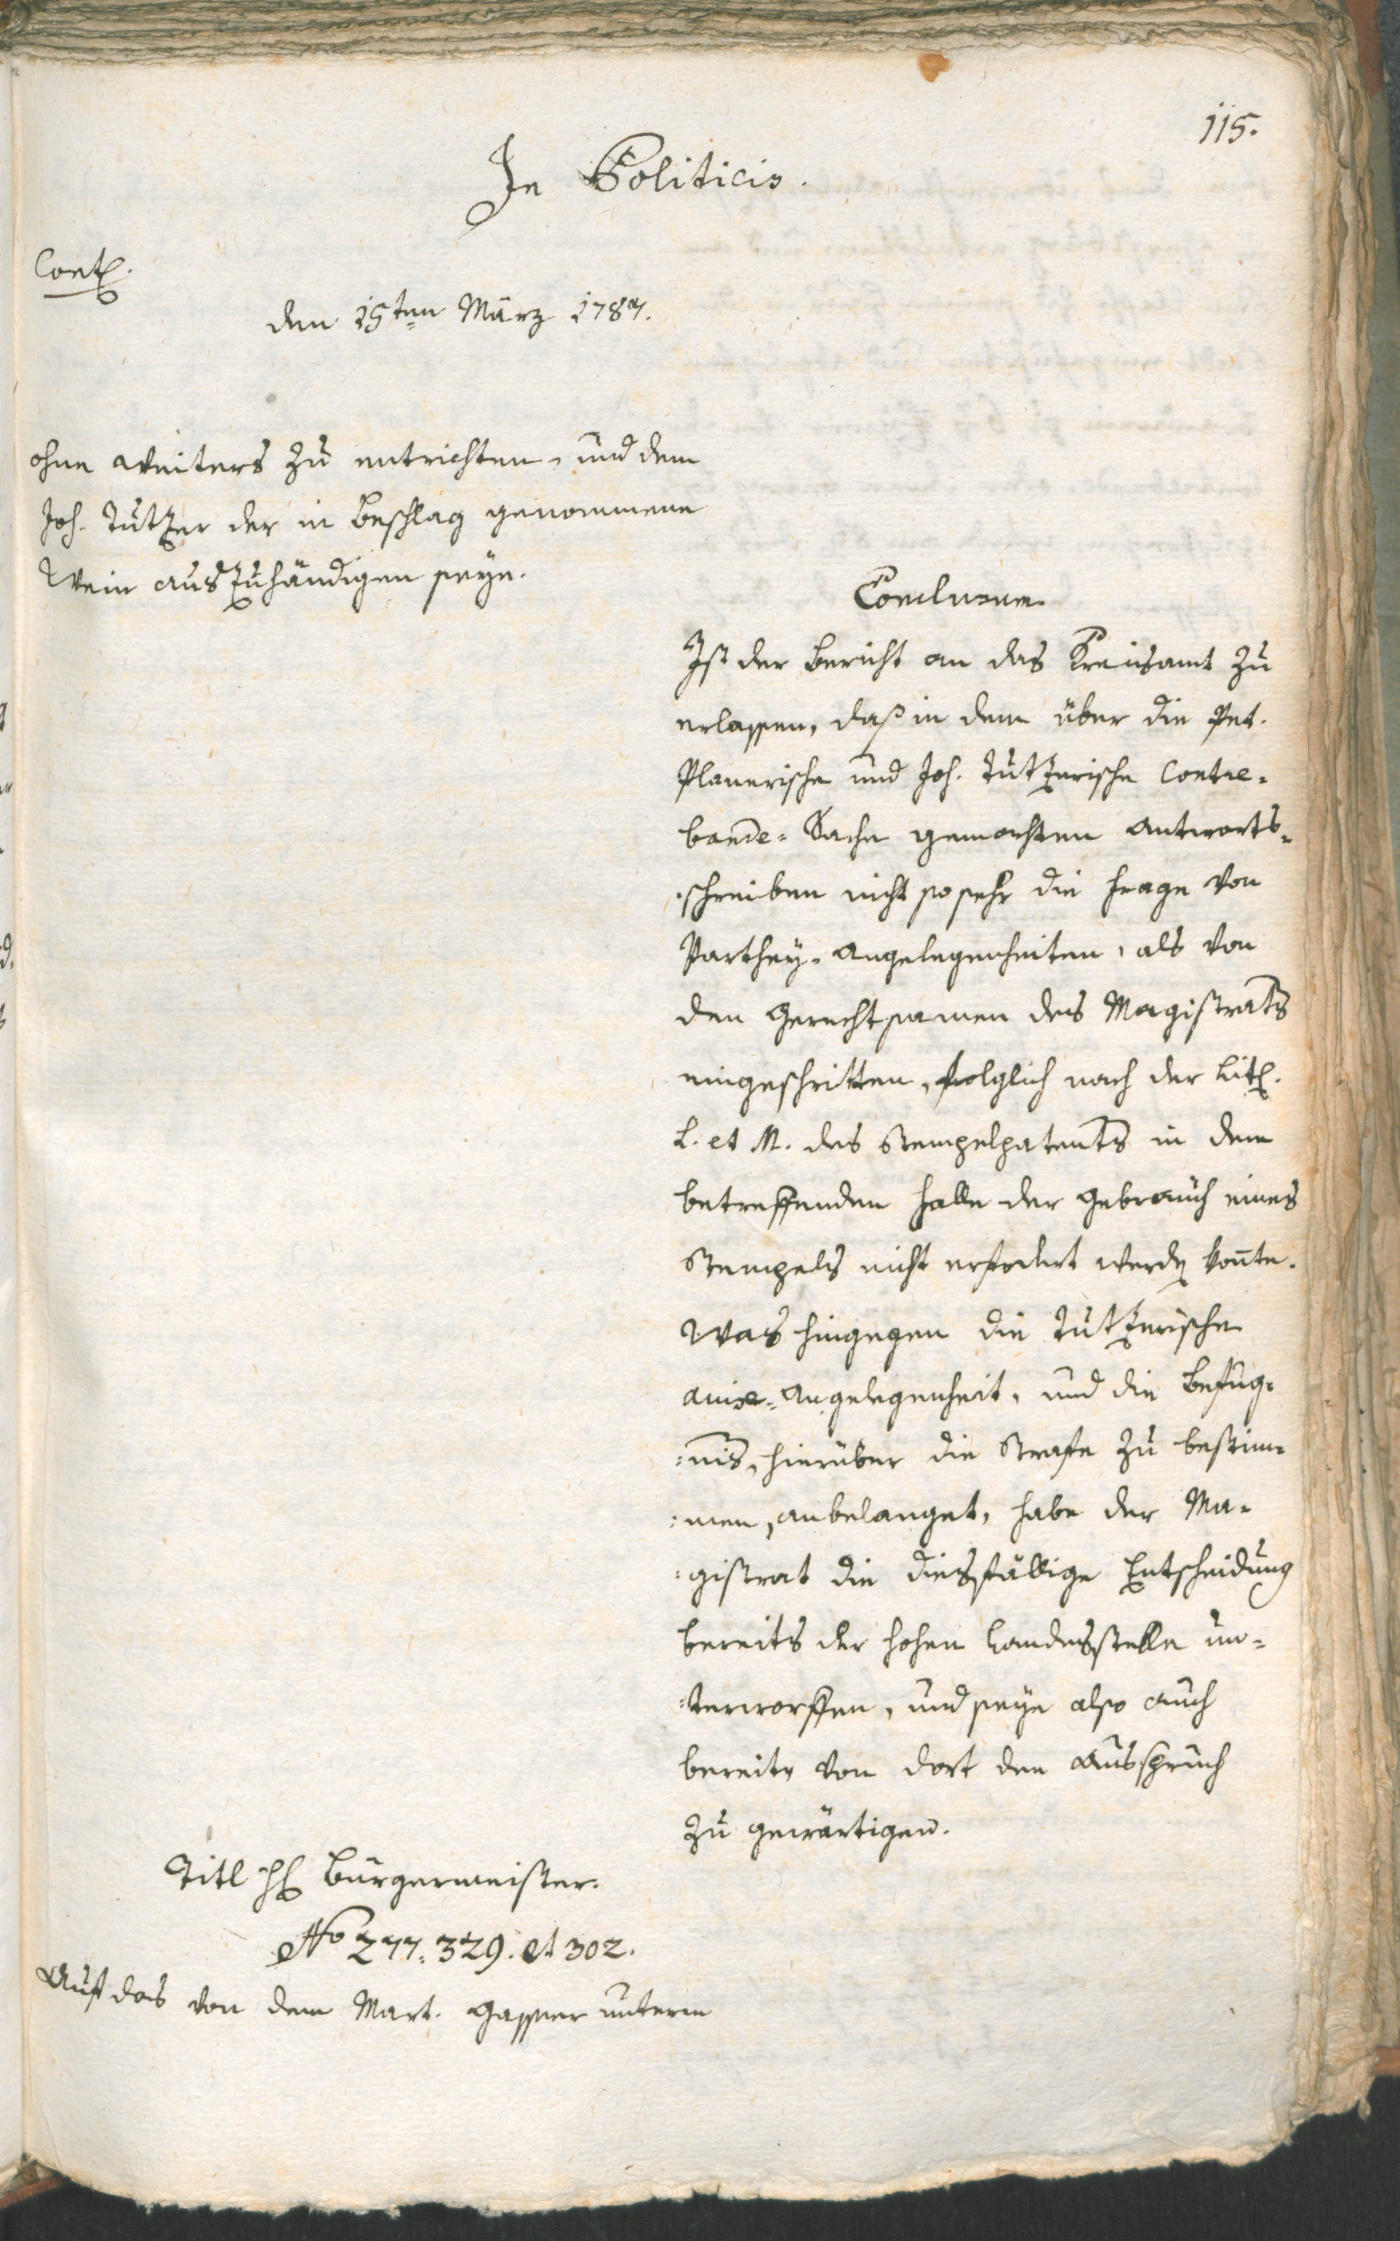 115.
In Politicis.
Cont.
den 15ten März 1787.
ohne weiters zu entrichten, und dem
Joh. Tutzer der in Beschlag genommene
Wein auszuhändigen seye.
Conclusum.
Ist der Bericht an das Kreisamt zu
erlassen, daß in dem über die Pet.
Planerische und Joh. Tutzerische Contre-
bande-Sache gemachten Antworts-
schreiben nicht so sehr die Frage von
Parthey-Angelegenheiten, als von
den Gerechtsamen des Magistrats
eingeschritten, folglich nach der Lit.
L. et M. des Stempelpatents in dem
betreffenden Falle der Gebrauch eines
Stempels nicht erfodert werden konnte.
Was hingegen die Tutzerische
Angelegenheit, und die Befug-
:nis, hierüber die Strafe zu bestim-
:men, anbelanget, habe der Ma-
:gistrat die diesfällige Entscheidung
bereits der hohen Landesstelle un-
:terworffen, und seye also auch
bereits von dort den Ausspruch
zu gewärtigen.
Titl H Bürgermeister.
No 277. 329. et 302.
Auf das von dem Mart. Gasser unterm